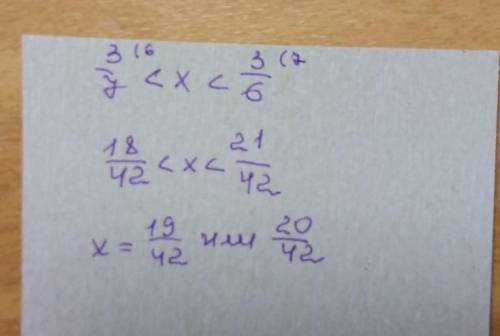 3/7 (6 < x < 3/6 (7
18/42 < x < 21/42
x = 19/42 или 20/42